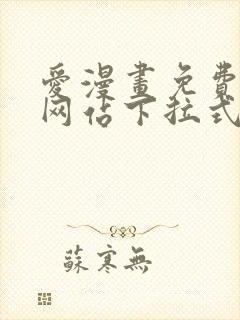 愛漫畫免費
网佔下拉式
蘇寒無